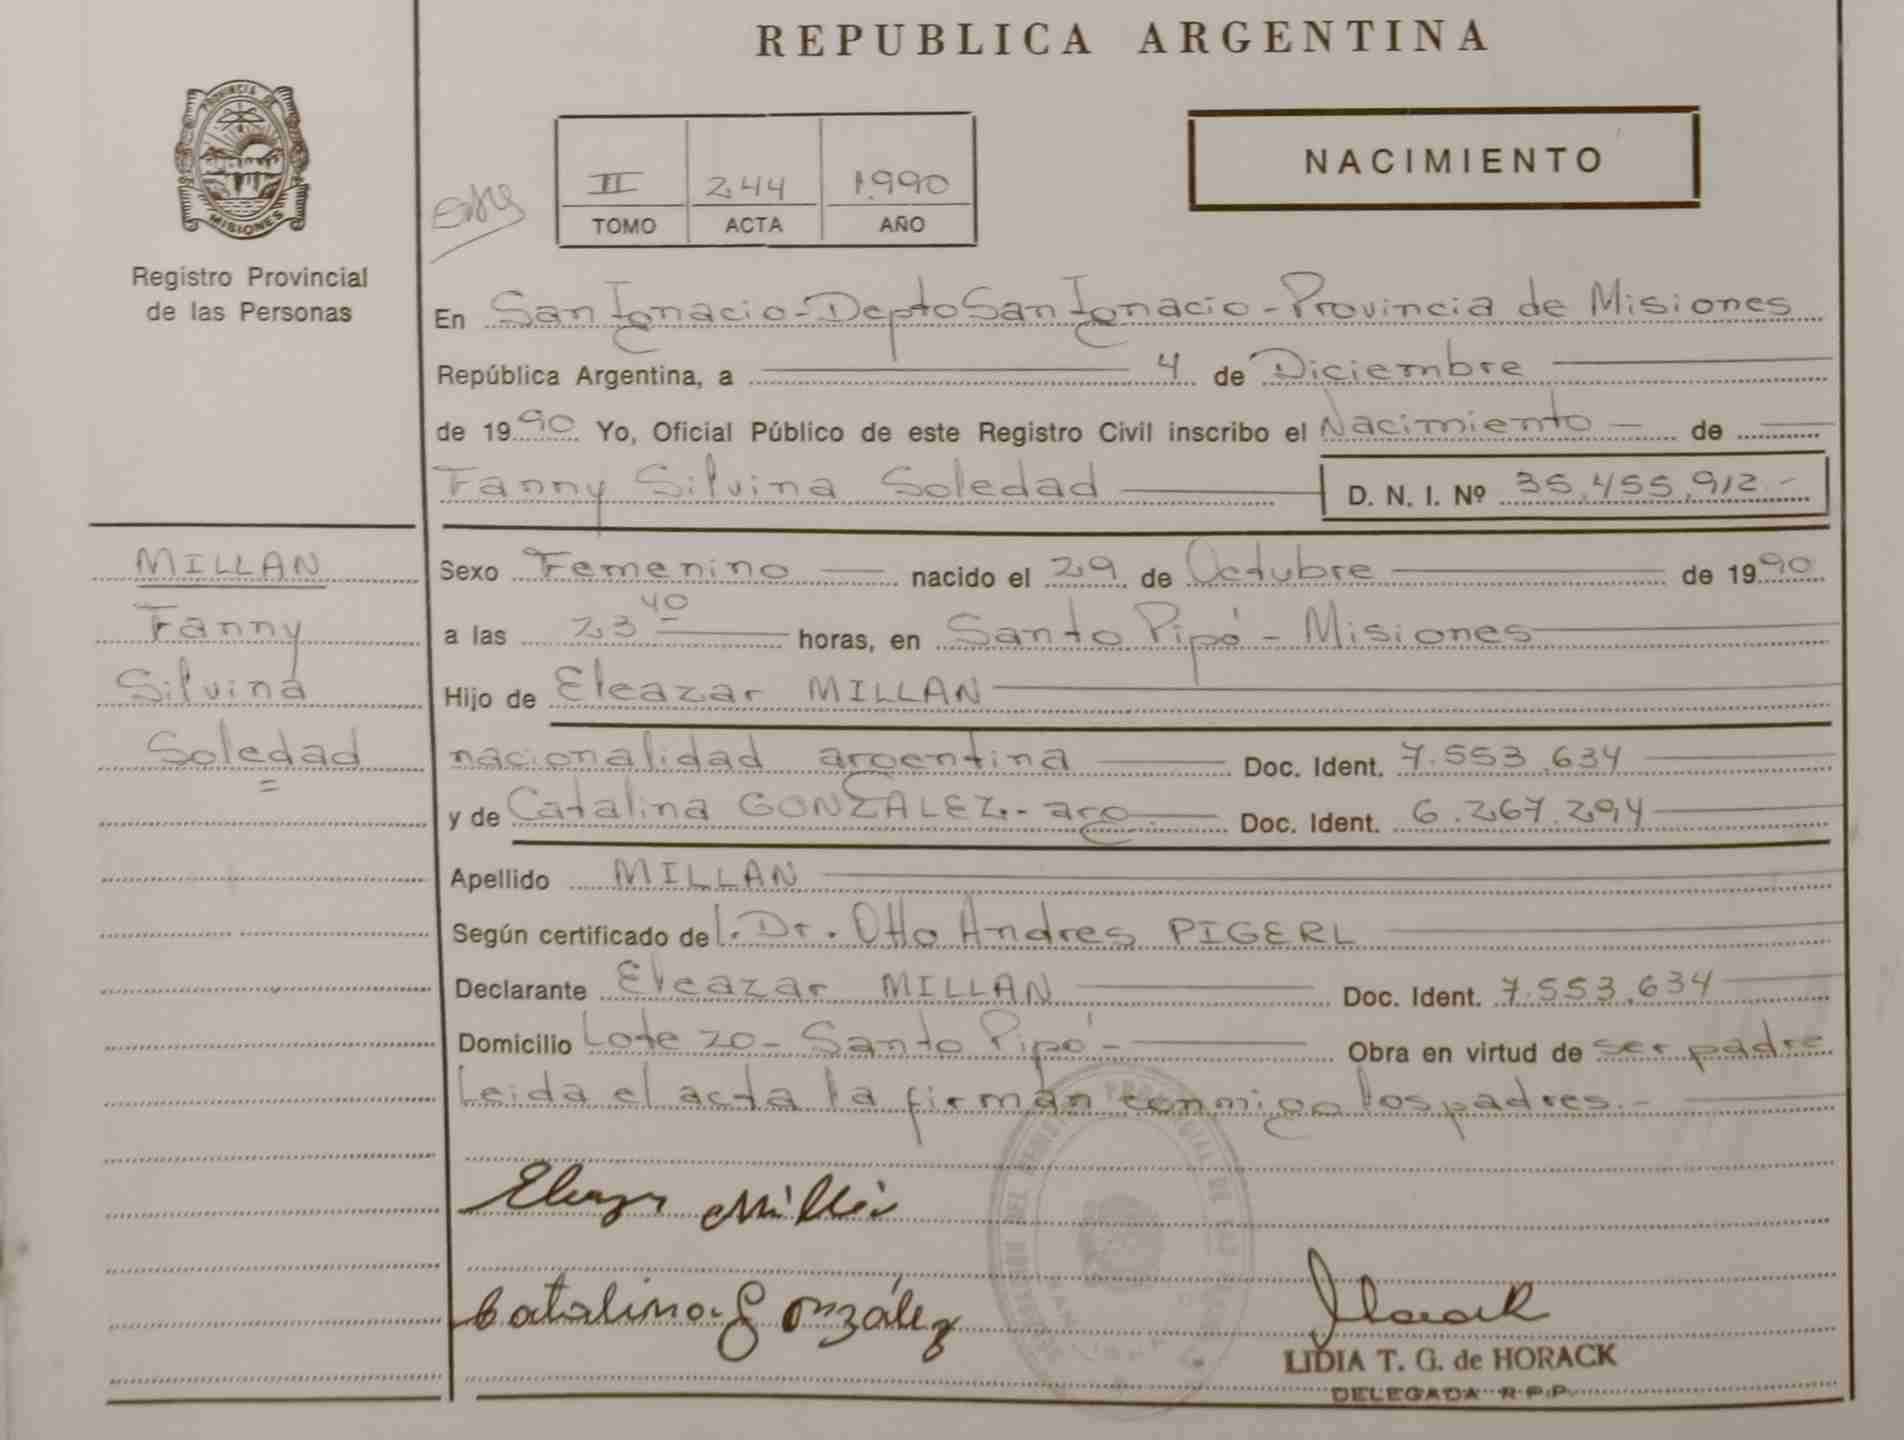 REPUBLICA ARGENTINA
PROVINCIA DE
MISIONES
Registro Provincial
de las Personas
II 244 1990
TOMO ACTA AÑO
NACIMIENTO
En San Ignacio - Depto San Ignacio - Provincia de Misiones
República Argentina, a 4 de Diciembre
de 1990 Yo, Oficial Público de este Registro Civil inscribo el Nacimiento - de
Fanny Silvina Soledad D. N. I. Nº 35.455.912.-
MILLAN
Fanny
Silvina
Soledad
Sexo Femenino nacido el 29 de Octubre de 1990
a las 23 40 horas, en Santo Pipó - Misiones
Hijo de Eleazar MILLAN
nacionalidad argentina Doc. Ident. 7.553.634
y de Catalina GONZALEZ.- arg. Doc. Ident. 6.267.294
Apellido MILLAN
Según certificado del. Dr. Otto Andres PIGERL
Declarante Eleazar MILLAN Doc. Ident. 7.553.634
Domicilio Lote 20 - Santo Pipó - Obra en virtud de ser padre
Leida el acta la firman conmigo los padres.-
Eleazar Millán
Catalina González
LIDIA T. G. de HORACK
DELEGADA R.P.P.